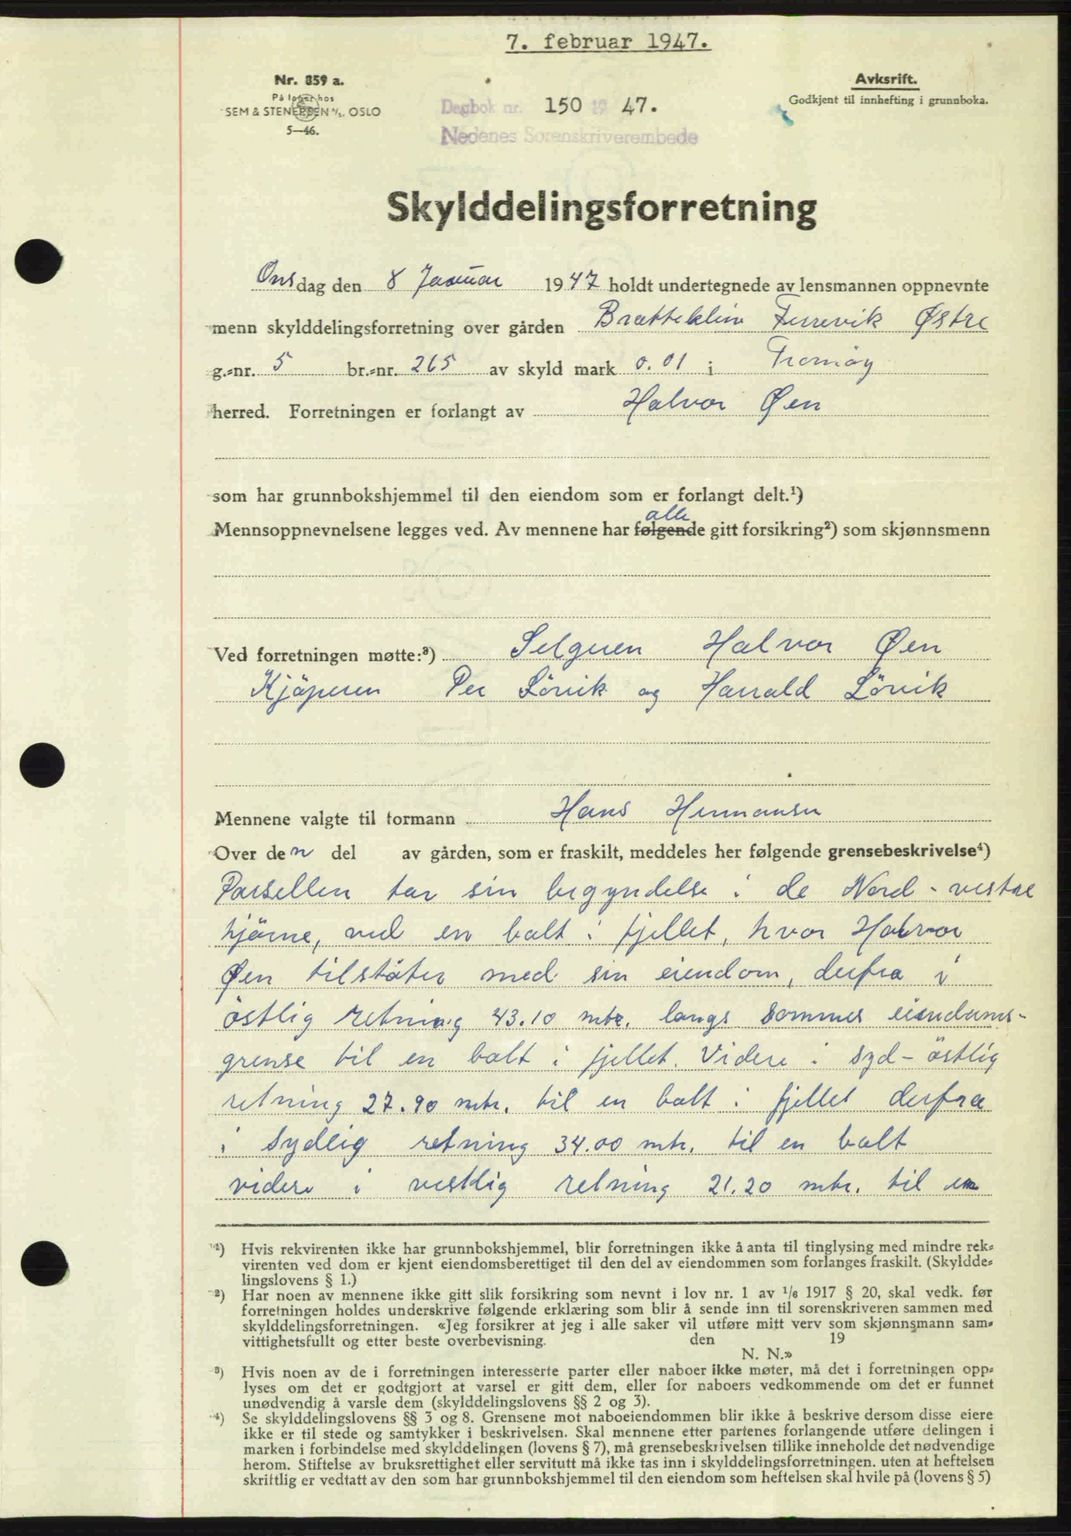 7. februar 1947.
Nr. 859 a.
På lager hos
SEM & STENERSEN A/S. OSLO
5-46.
Dagbok nr. 150 19 47.
Nedenes Sorenskriverembede
Avksrift.
Godkjent til innhefting i grunnboka.
Skylddelingsforretning
Onsdag den 8 Januar 1947 holdt undertegnede av lensmannen oppnevnte
menn skylddelingsforretning over gården Bratteklein Færevik Østre
g.-nr. 5 br.-nr. 265 av skyld mark 0.01 i Tromöy
herred. Forretningen er forlangt av Halvor Øen
som har grunnbokshjemmel til den eiendom som er forlangt delt.¹)
alle
Mennsoppnevnelsene legges ved. Av mennene har følgende gitt forsikring²) som skjønnsmenn
Ved forretningen møtte:³) Selgeren Halvor Øen
Kjöperen Per Lövik og Harald Lövik
Mennene valgte til formann Hans Hermansen
Over den del av gården, som er fraskilt, meddeles her følgende grensebeskrivelse⁴)
Parsellen tar sin begyndelse i de Nord-vestre
hjörne, ved en bolt i fjellet, hvor Halvor
Øen tilstöter med sin eiendom, derfra i
östlig retning 43.10 mtr. langs sammes eiendoms-
grense til en bolt i fjellet. Videre i syd-östlig
retning 27.90 mtr. til en bolt i fjellet derfra
i sydlig retning 34.00 mtr. til en bolt
videre i vestlig retning 21.20 mtr. til en
¹) Hvis rekvirenten ikke har grunnbokshjemmel, blir forretningen ikke å anta til tinglysing med mindre rek-
virenten ved dom er kjent eiendomsberettiget til den del av eiendommen som forlanges fraskilt. (Skyldde-
lingslovens § 1.)
²) Har noen av mennene ikke gitt slik forsikring som nevnt i lov nr. 1 av 1/6 1917 § 20, skal vedk. før
forretningen holdes underskrive følgende erklæring som blir å sende inn til sorenskriveren sammen med
skylddelingsforretningen. «Jeg forsikrer at jeg i alle saker vil utføre mitt verv som skjønnsmann sam-
vittighetsfullt og etter beste overbevisning. den 19
N. N.»
³) Hvis noen av de i forretningen interesserte parter eller naboer ikke møter, må det i forretningen opp-
lyses om det er godtgjort at varsel er gitt dem, eller for naboers vedkommende om det er funnet
unødvendig å varsle dem (skylddelingslovens §§ 2 og 3).
⁴) Se skylddelingslovens §§ 3 og 8. Grensene mot naboeiendommen blir ikke å beskrive dersom disse eiere
ikke er til stede og samtykker i beskrivelsen. Skal mennene etter partenes forlangende utføre delingen i
marken i forbindelse med skylddelingen (lovens § 7), må grensebeskrivelsen tillike inneholde det nødvendige
herom. Stiftelse av bruksrettighet eller servitutt må ikke tas inn i skylddelingsforretningen. uten at heftelsen
skriftlig er vedtatt av den som har grunnbokshjemmel til den eiendom som heftelsen skal hvile på (lovens § 5)